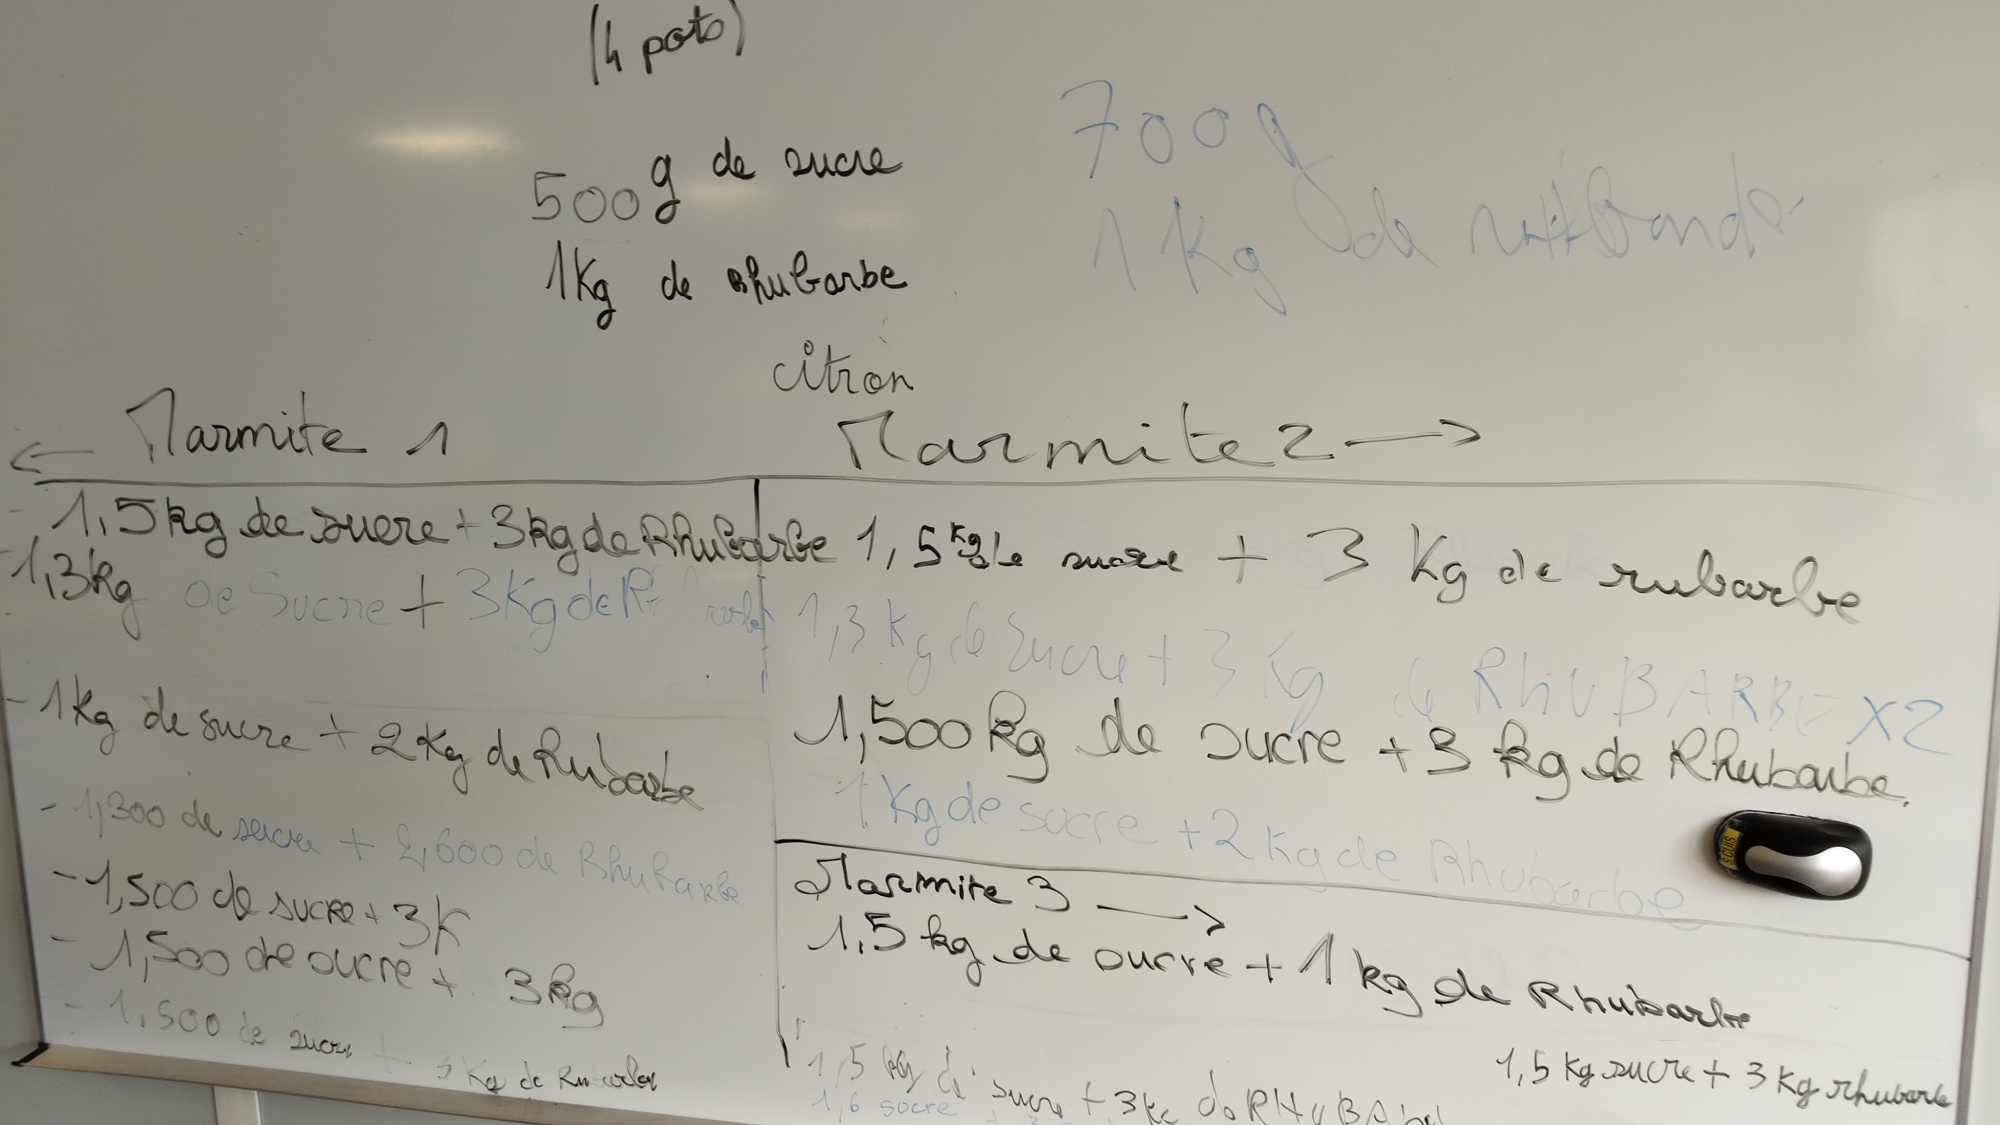 (4 pots)
500g de sucre
1Kg de Rhubarbe
citron
700g
1Kg de
← Marmite 1
- 1,5kg de sucre + 3kg de Rhubarbe
- 1,3kg de Sucre + 3Kg de R
- 1Kg de sucre + 2Kg de Rhubarbe
- 1,300 de sucre + 2,600 de Rhubarbe
- 1,500 de sucre + 3K
- 1,500 de sucre + 3kg
- 1,500 de sucre + 3Kg de Rubarbe
Marmite 2 →
1,5kg de sucre + 3 Kg de rubarbe
1,3 Kg de Sucre + 3 Kg de RHUBARBE X2
1,500 kg de sucre + 3 kg de Rhubarbe.
1 Kg de sucre + 2 Kg de Rhubarbe
Marmite 3 →
1,5 kg de sucre + 1 kg de Rhubarbe
1,5 Kg sucre + 3 Kg rhubarbe
1,5 Kg de sucre + 3kg de RHUBA
1,6 sucre